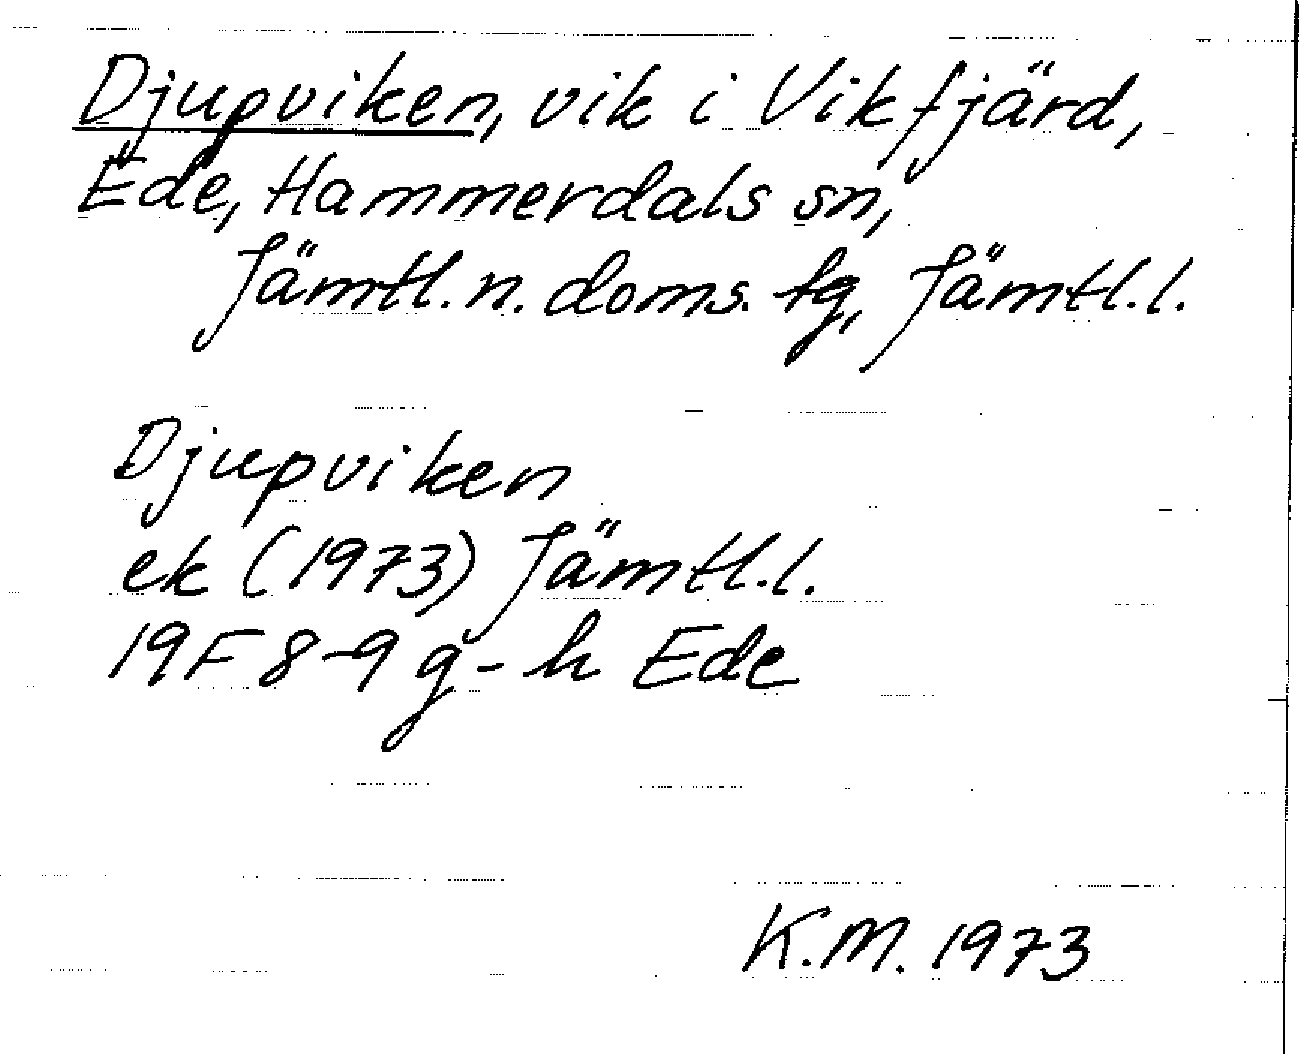 Djupviken, vik i Vikfjärd,
Ede, Hammerdals sn,
Jämtl. n. doms. tg, Jämtl. l.
Djupviken
ek (1973) Jämtl. l.
19F 8-9 g-h Ede
K.M. 1973